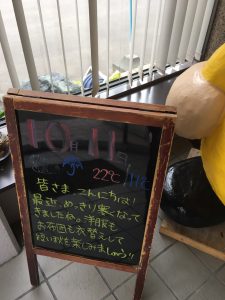 10月11日
22℃ 14℃
皆さま こんにちは！
最近、めっきり寒くなって
きましたね。洋服も
お布団も衣替えして
短い秋を楽しみましょう!!